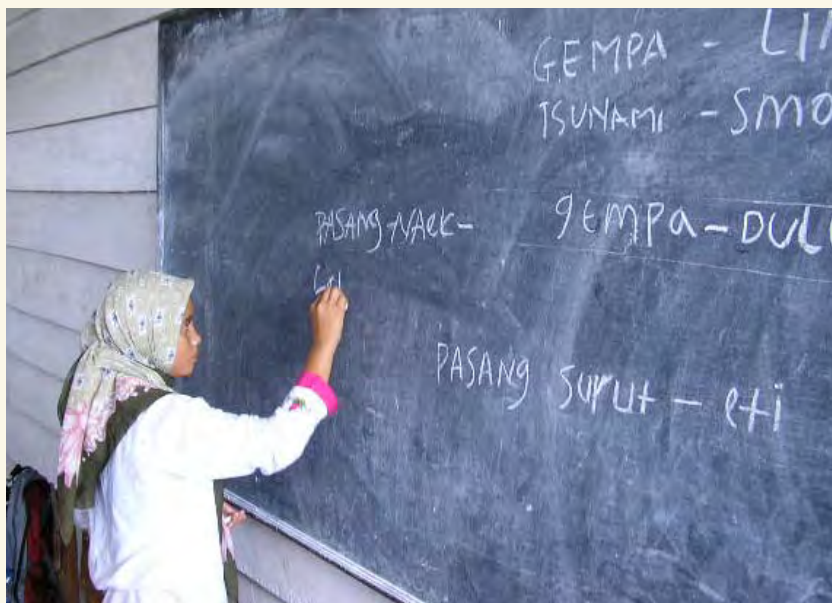 GEMPA - LI
TSUNAMI - SMO
PASANG-NAEK- gEMPa-DUL
PASANG surut - eti